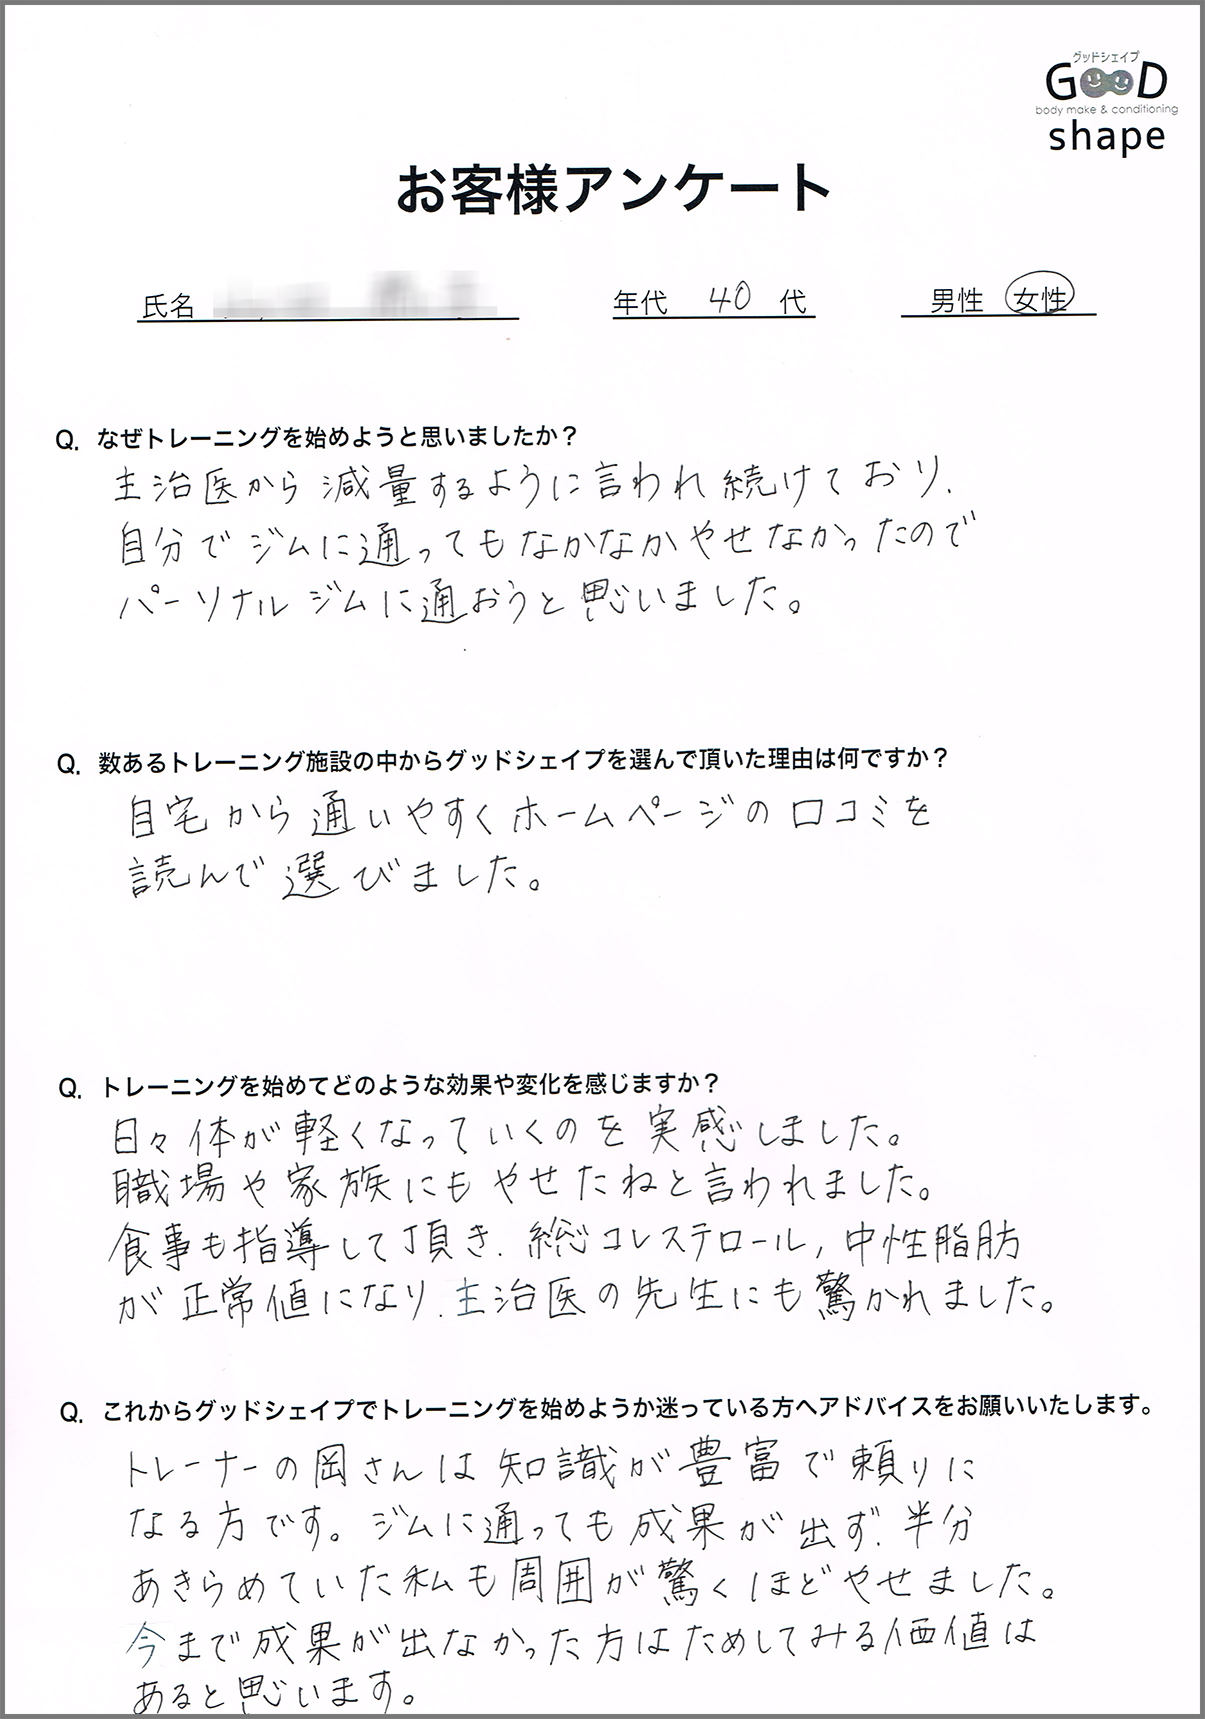 グッドシェイプ
GOOD
body make & conditioning
shape
お客様アンケート
氏名 年代 40 代 男性 女性
Q. なぜトレーニングを始めようと思いましたか？
主治医から減量するように言われ続けており、
自分でジムに通ってもなかなかやせなかったので
パーソナルジムに通おうと思いました。
Q. 数あるトレーニング施設の中からグッドシェイプを選んで頂いた理由は何ですか？
自宅から通いやすくホームページの口コミを
読んで選びました。
Q. トレーニングを始めてどのような効果や変化を感じますか？
日々体が軽くなっていくのを実感しました。
職場や家族にもやせたねと言われました。
食事も指導して頂き、総コレステロール，中性脂肪
が正常値になり、主治医の先生にも驚かれました。
Q. これからグッドシェイプでトレーニングを始めようか迷っている方へアドバイスをお願いいたします。
トレーナーの岡さんは知識が豊富で頼りに
なる方です。ジムに通っても成果が出ず、半分
あきらめていた私も周囲が驚くほどやせました。
今まで成果が出なかった方はためしてみる価値は
あると思います。